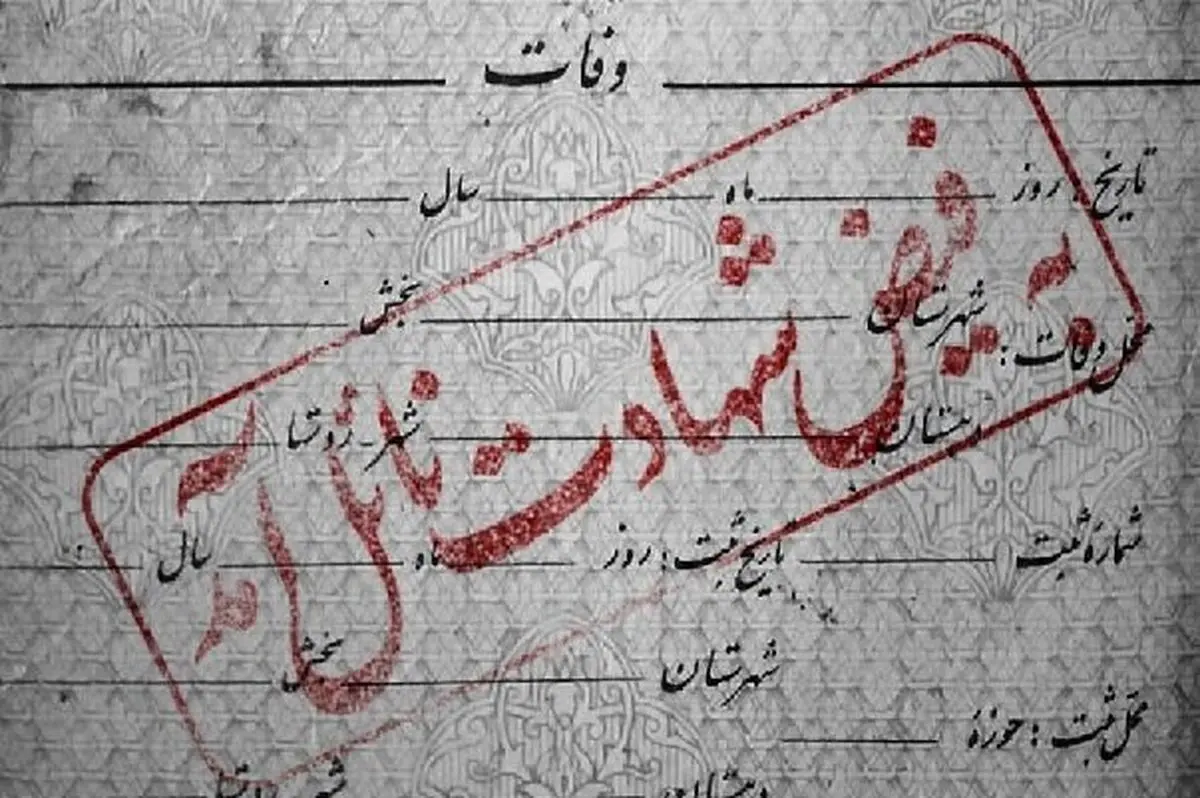 وفات
تاریخ : روز ماه سال
محل وفات : شهرستان بخش
دهستان شهر ـ روستا
شمارهٔ ثبت تاریخ ثبت : روز ماه سال
محل ثبت : حوزهٔ شهرستان بخش
دهستان شهر ـ روستا
به فیض شهادت نائل آمد